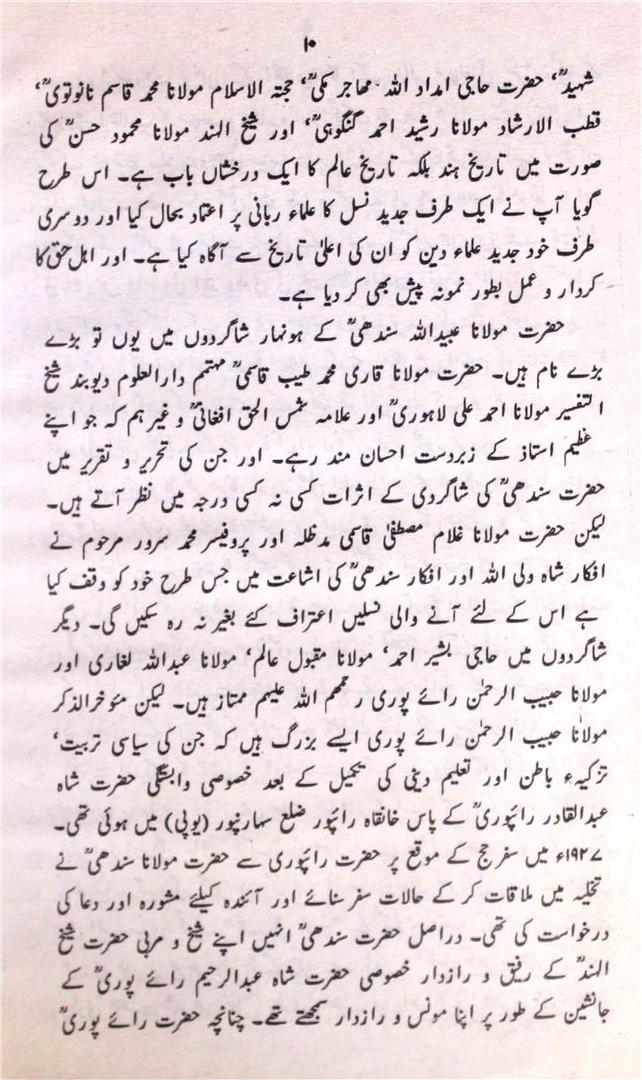 ۱۰
شہیدؒ، حضرت حاجی امداد اللہ مہاجر مکیؒ، حجتہ الاسلام مولانا محمد قاسم نانوتویؒ،
قطب الارشاد مولانا رشید احمد گنگوہیؒ، اور شیخ الہند مولانا محمود حسنؒ کی
صورت میں تاریخ ہند بلکہ تاریخ عالم کا ایک درخشاں باب ہے۔ اس طرح
گویا آپ نے ایک طرف جدید نسل کا علماء ربانی پر اعتماد بحال کیا اور دوسری
طرف خود جدید علماء دین کو ان کی اعلیٰ تاریخ سے آگاہ کیا ہے۔ اور اہل حق کا
کردار و عمل بطور نمونہ پیش بھی کر دیا ہے۔
حضرت مولانا عبید اللہ سندھیؒ کے ہونہار شاگردوں میں یوں تو بڑے
بڑے نام ہیں۔ حضرت مولانا قاری محمد طیب قاسمیؒ مہتمم دارالعلوم دیوبند شیخ
التفسیر مولانا احمد علی لاہوریؒ اور علامہ شمس الحق افغانیؒ وغیرہم کہ جو اپنے
عظیم استاذ کے زبردست احسان مند رہے۔ اور جن کی تحریر و تقریر میں
حضرت سندھیؒ کی شاگردی کے اثرات کسی نہ کسی درجہ میں نظر آتے ہیں۔
لیکن حضرت مولانا غلام مصطفیٰ قاسمی مدظلہ اور پروفیسر محمد سرور مرحوم نے
افکار شاہ ولی اللہ اور افکار سندھیؒ کی اشاعت میں جس طرح خود کو وقف کیا
ہے اس کے لئے آنے والی نسلیں اعتراف کئے بغیر نہ رہ سکیں گی۔ دیگر
شاگردوں میں حاجی بشیر احمد، مولانا مقبول عالم، مولانا عبداللہ لغاری اور
مولانا حبیب الرحمٰن رائے پوری رحمہم اللہ علیہم ممتاز ہیں۔ لیکن مئوخرالذکر
مولانا حبیب الرحمٰن رائے پوری ایسے بزرگ ہیں کہ جن کی سیاسی تربیت،
تزکیہء باطن اور تعلیم دینی کی تکمیل کے بعد خصوصی وابستگی حضرت شاہ
عبدالقادر رائپوریؒ کے پاس خانقاہ رائپور ضلع سہارنپور (یوپی) میں ہوئی تھی۔
۱۹۲۷ء میں سفر حج کے موقع پر حضرت رائپوری سے حضرت مولانا سندھیؒ نے
تخلیہ میں ملاقات کر کے حالات سفر سنائے اور آئندہ کیلئے مشورہ اور دعا کی
درخواست کی تھی۔ دراصل حضرت سندھیؒ انہیں اپنے شیخ و مربی حضرت شیخ
الہندؒ کے رفیق و رازدار خصوصی حضرت شاہ عبدالرحیم رائے پوریؒ کے
جانشین کے طور پر اپنا مونس و رازدار سمجھتے تھے۔ چنانچہ حضرت رائے پوریؒ